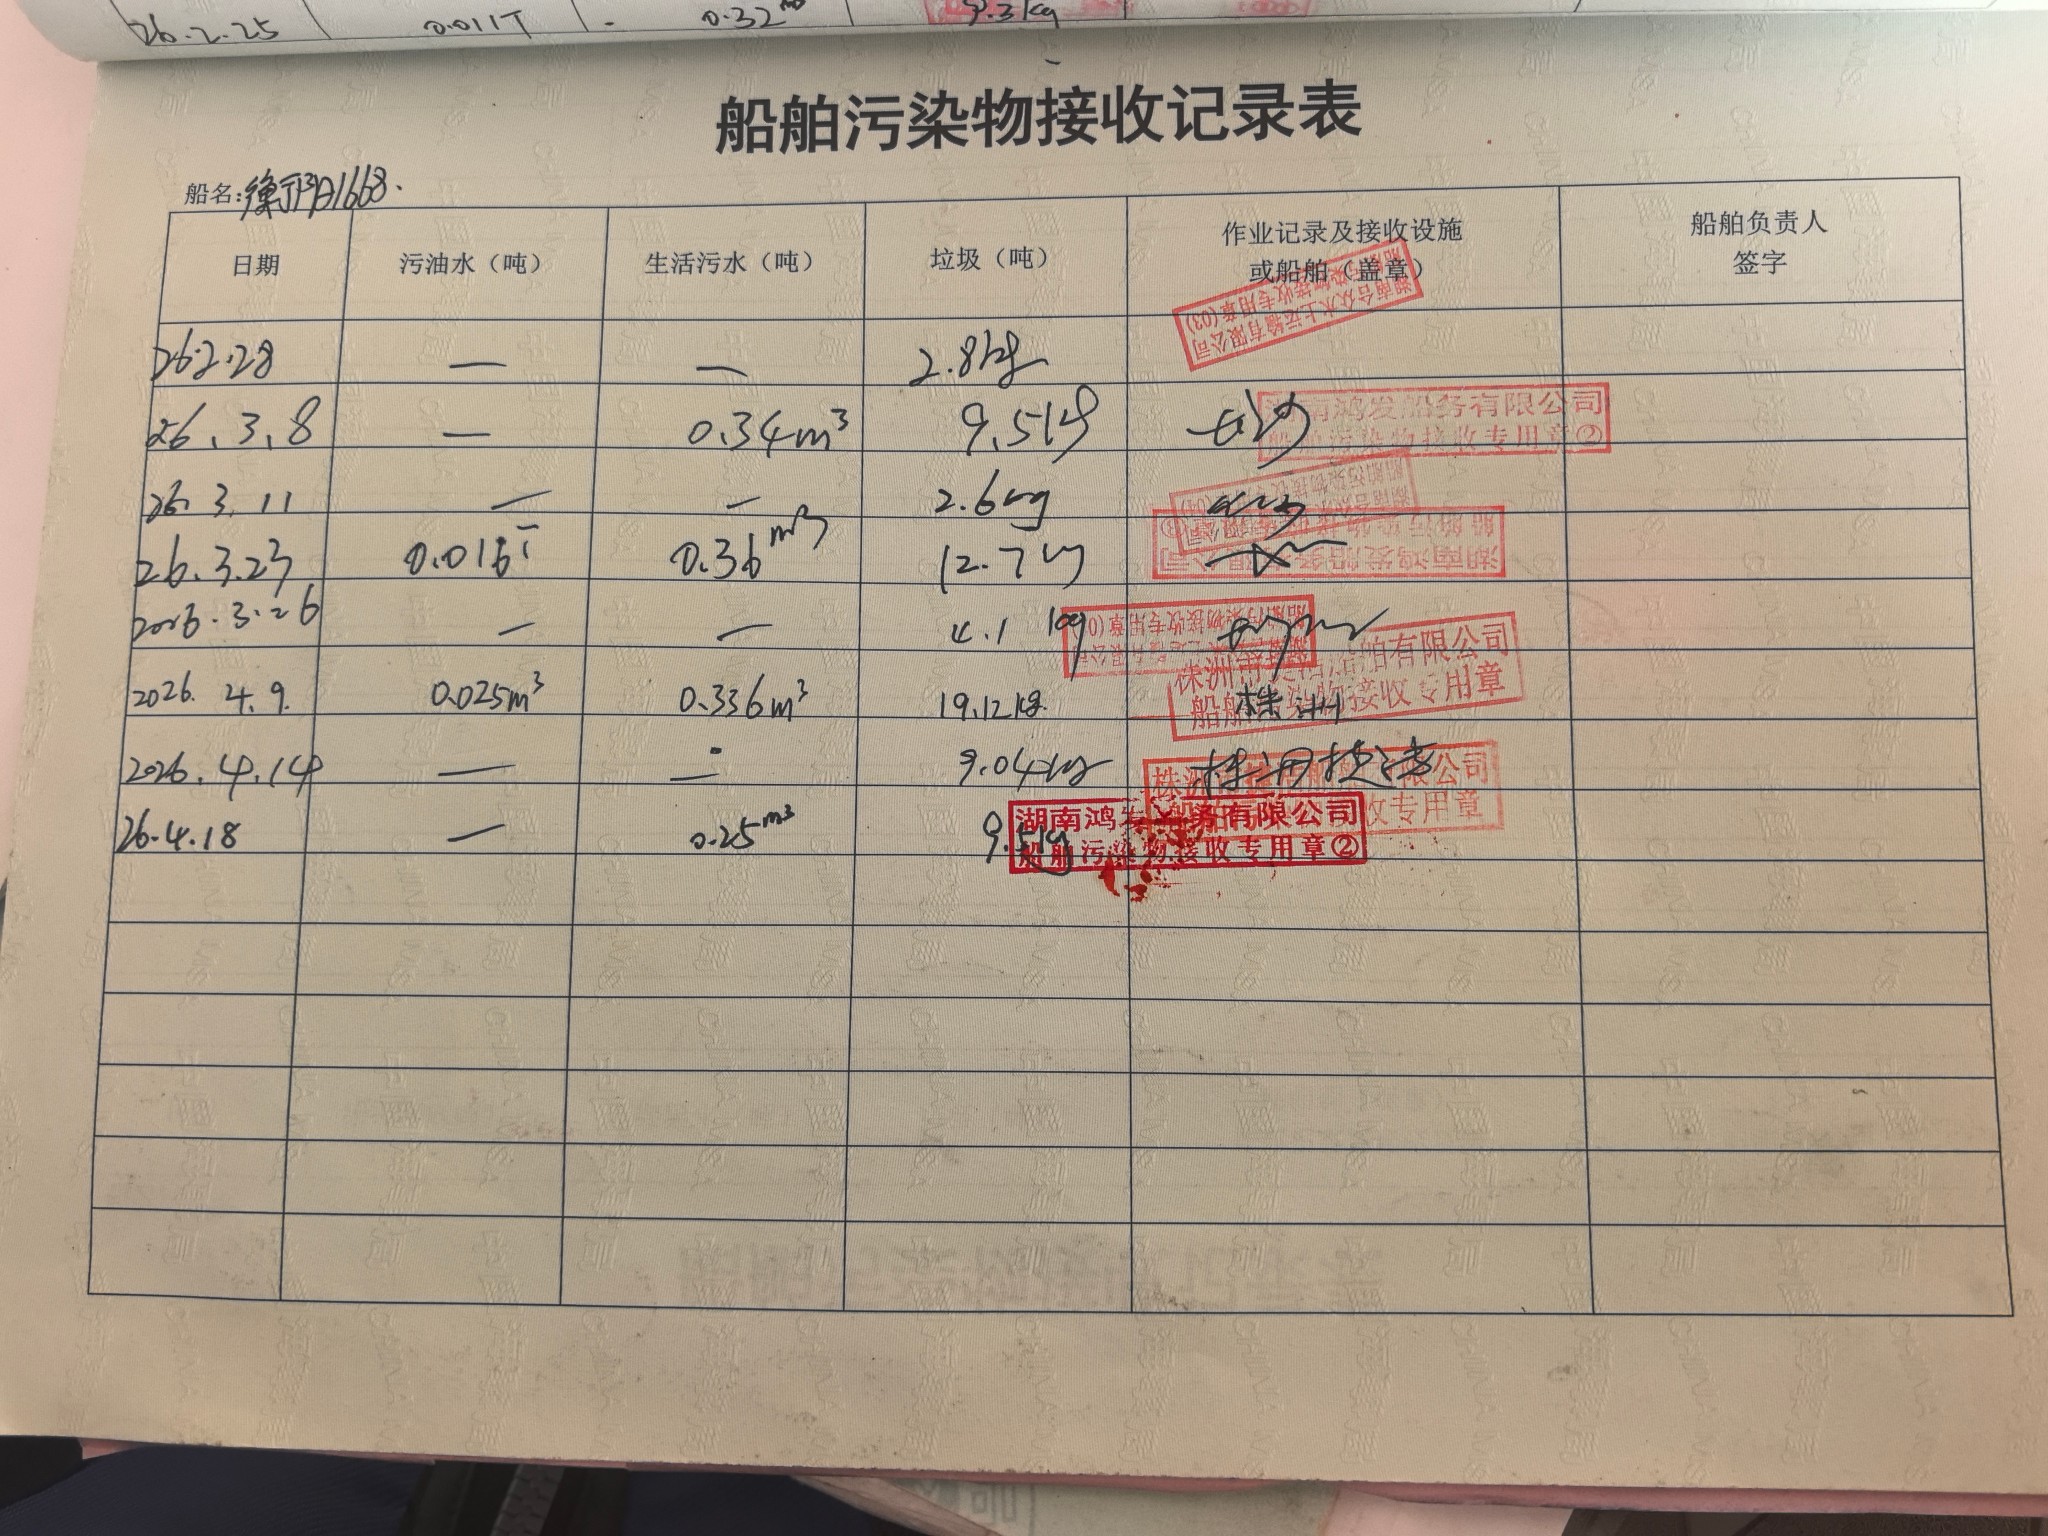 26.2.25 0.011T - 0.32 m³ 9.3kg
船舶污染物接收记录表
船名:衡阳1668.
日期 污油水（吨） 生活污水（吨） 垃圾（吨） 作业记录及接收设施 或船舶（盖章） 船舶负责人 签字
湖南合众水上运输有限公司
船舶污染物接收专用章(03)
26.2.28 — — 2.8kg
湖南鸿发船务有限公司
船舶污染物接收专用章②
26.3.8 — 0.34m³ 9.5kg 长沙
26.3.11 — — 2.6kg
湖南鸿发船务有限公司
26.3.23 0.016T 0.36m³ 12.7kg
2026.3.26 — — 4.1kg
株洲 船舶有限公司
船舶污染物接收专用章
2026.4.9. 0.025m³ 0.336m³ 19.12kg. 株洲
2026.4.14 — — 9.04kg
株洲 有限公司
接收专用章
湖南鸿发船务有限公司
船舶污染物接收专用章②
26.4.18 — 0.25m³ 9.5kg